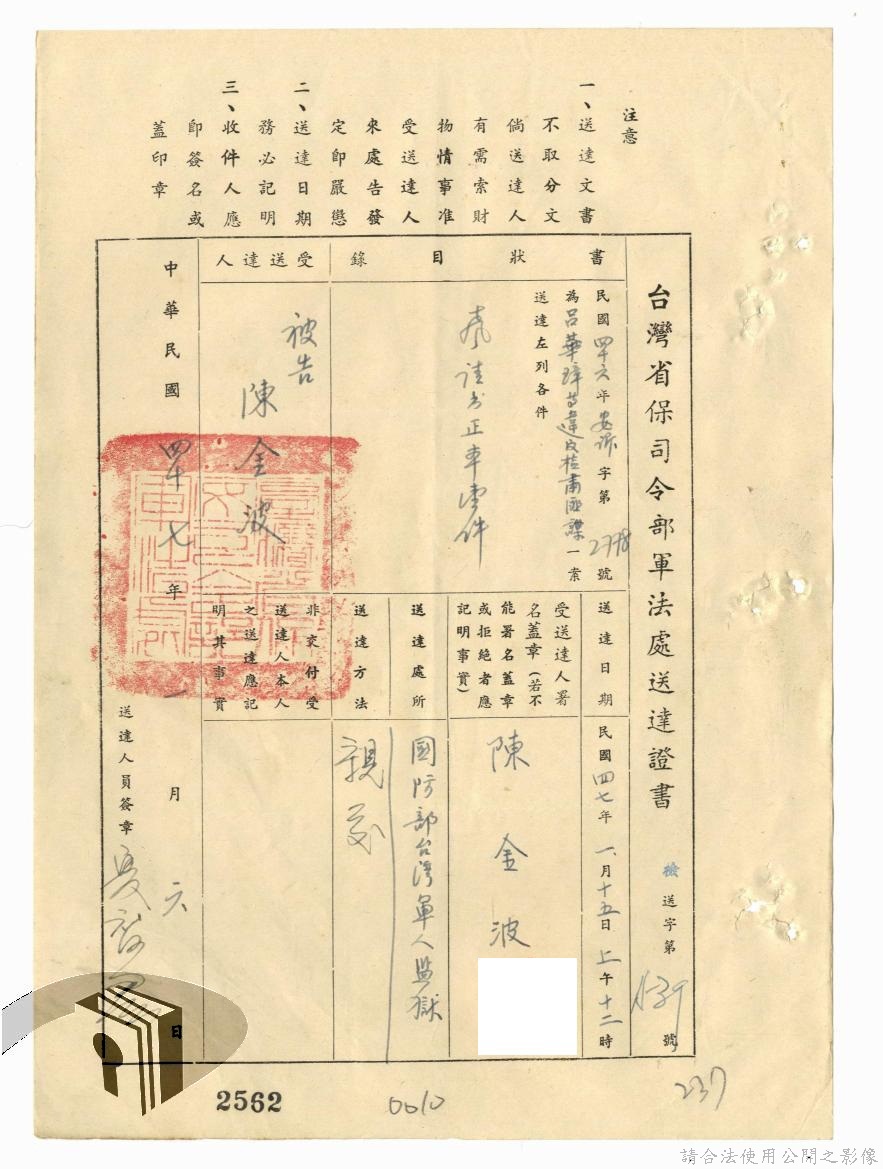 注意
一、送達文書
不取分文
倘送達人
有需索財
物情事准
受送達人
來處告發
定即嚴懲
二、送達日期
務必記明
三、收件人應
即簽名或
蓋印章
台灣省保司令部軍法處送達證書 檢送字第 號
書狀目錄
民國四十六年安訴字第2798號
為呂華璋等違反檢肅匪諜一案
送達左列各件
聲請書正本壹件
受送達人
被告
陳金波
送達日期
民國四七年一月十五日上午十二時
受送達人署
名蓋章(若不
能署名蓋章
或拒絕者應
記明事實)
陳金波
送達處所
國防部台灣軍人監獄
送達方法
親交
非交付受
送達人本人
之送達應記
明其事實
中華民國四十七年一月六日
送達人員簽章
2562
0010
237
請合法使用公開之影像